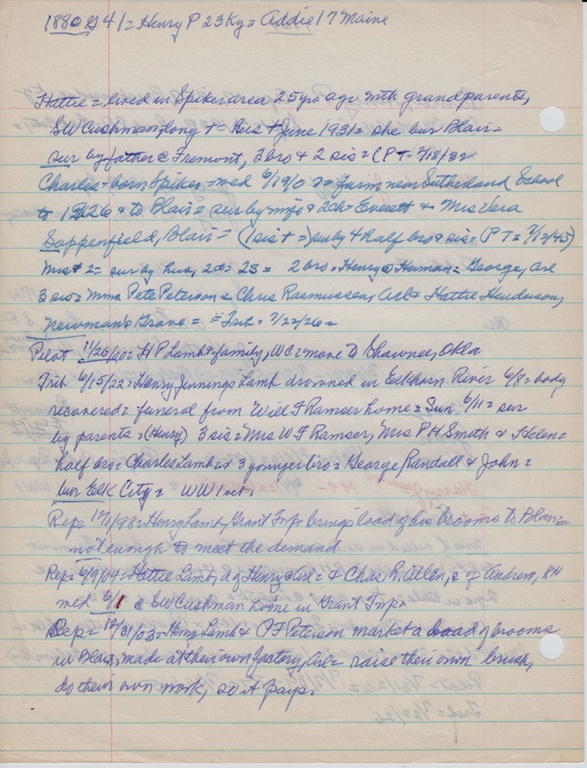 1880 G 41 = Henry P 23 Ky = Addie 17 Maine
Hattie = lived in Spiker area 25 yrs ago with grandparents,
SW Cushman long t = Hus + June 1931 = she bur Blair =
sur by father @ Fremont, 3 bro & 2 sis = (P T = 7/15/32
Charles = born Spiker = med 6/19/0 = farm near Sutherland School
to 1926 & to Blair = sur by wife & 2 ch = Everett & Mrs Vera
Sappenfield, Blair = (1 sis + =) sur by 4 half bro & sis = (P T = 7/12/45)
Mrs + 2 = sur by Hus, 2 = 2S = 2 bro = Henry & Herman = George, Arl
3 sis = Mmn Pete Peterson & Chris Rasmussen, Arl & Hattie Henderson,
Newman's Grove = = Trib = 7/22/26 =
Pilot 11/26/20 = H P Lamb & family, WC = move to Shawnee, Okla
Trib 6/15/22 = Henry Jennings Lamb drowned in Eelkhorn River 6/8 = body
recovered = funeral from Will F Ramser home = Sun 6/11 = sur
by parents = (Henry) 3 sis = Mrs W F Ramser, Mrs P H Smith & Helen =
half bro = Charles Lamb = & 3 younger bro = George, Randall & John =
bur Elk City = WW 1 vet
Rep = 1/98 = Henry Lamb, Grant Twp = brings load of his brooms to Blair =
not enough to meet the demand
Rep = 6/9/04 = Hattie Lamb, d of Henry, Arl = & Chas R Allen, s of Andrew, RH
med 6/1 @ SW Cushman home in Grant Twp =
Rep = 12/31/03 = Henry Lamb & P F Peterson market a load of brooms
in Blair, made at their own factory, Arl = raise their own brush,
do their own work, so it pays.